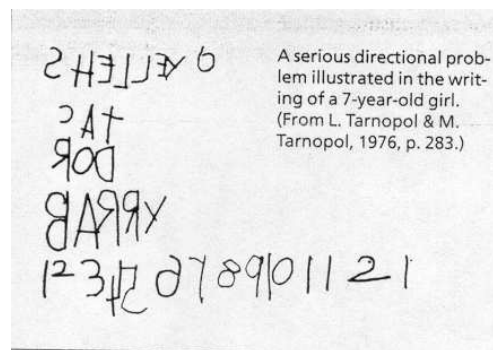 SHELLEY 6
CAT
ROD
BARRY
12345 6789101121
A serious directional prob-
lem illustrated in the writ-
ing of a 7-year-old girl.
(From L. Tarnopol & M.
Tarnopol, 1976, p. 283.)